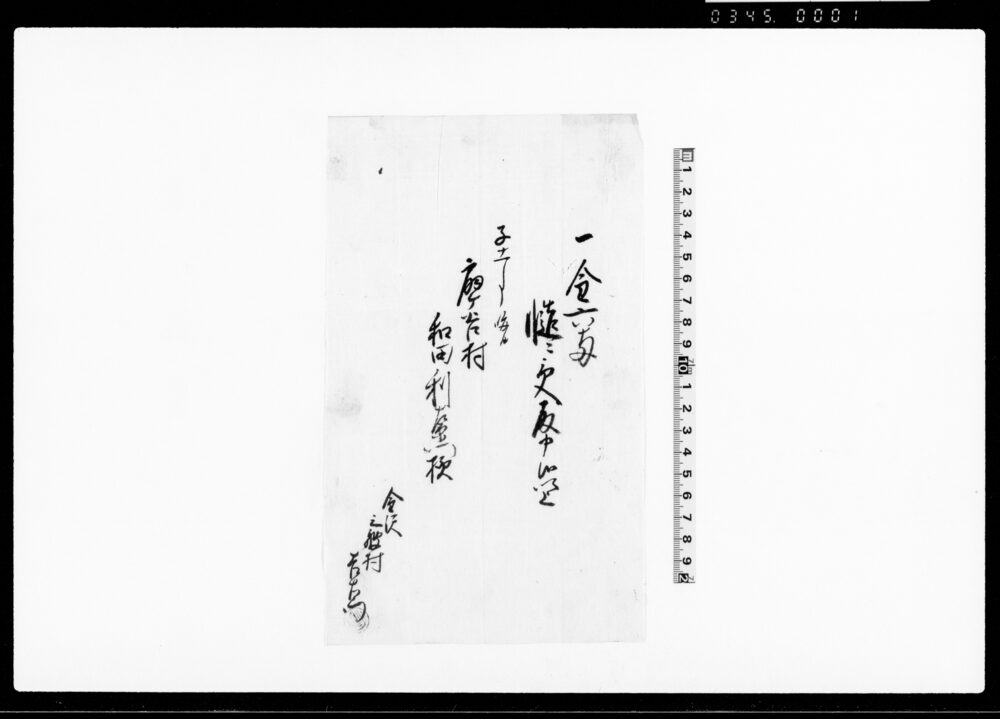 0345. 0001
一金六両
慥ニ受取申候以上
子十二月晦日
廟ヶ谷村
和田利右衛門様
金沢
村
m 1 2 3 4 5 6 7 8 9 10 1 2 3 4 5 6 7 8 9 2